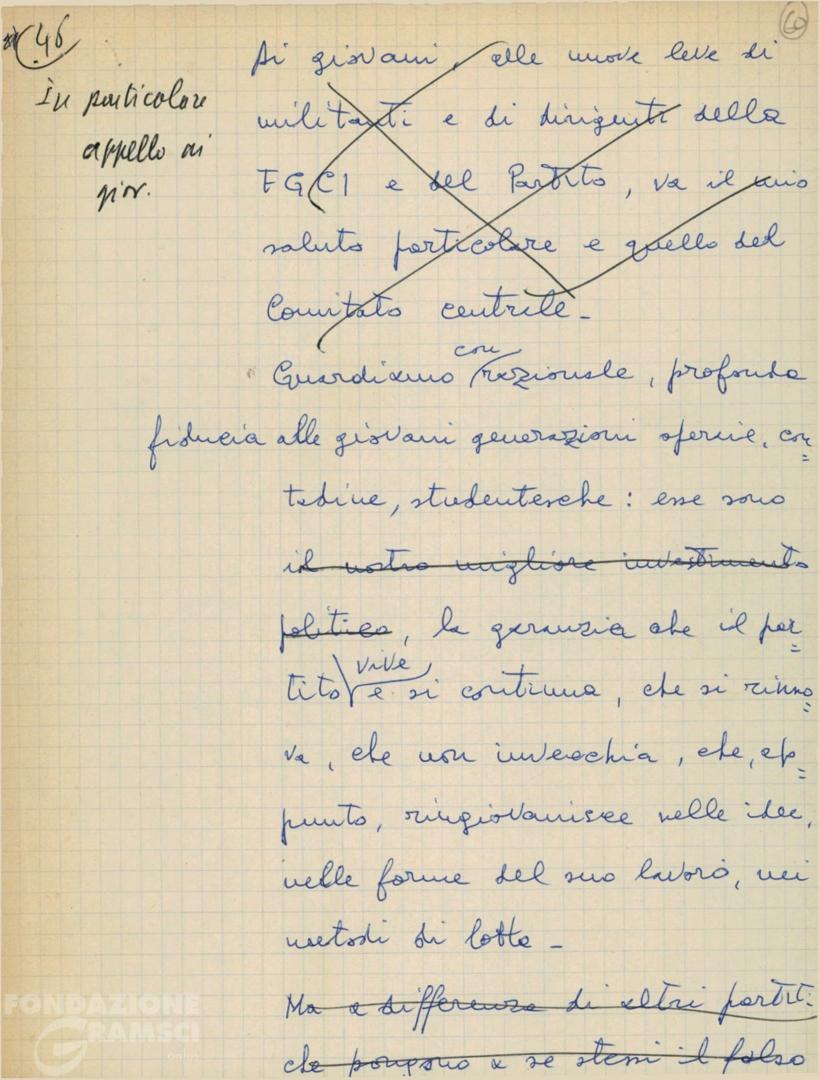 46
60
In particolare
appello ai
giov.
Ai giovani, alle nuove leve di
militanti e di dirigenti della
FGCI e del Partito, va il mio
saluto particolare e quello del
Comitato centrale -
con
Guardiamo razionale, profonda
fiducia alle giovani generazioni operaie, con=
tadine, studentesche: esse sono
il nostro migliore investimento
politico, la garanzia che il par=
vive
tito e si continua, che si rinno=
va, che non invecchia, che, ap=
punto, ringiovanisce nelle idee,
nelle forme del suo lavoro, nei
metodi di lotta -
Ma a differenza di altri partiti
che pongono a se stessi il falso
FONDAZIONE
GRAMSCI